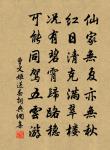 仙家無夏亦無秋
紅日清風滿翠樓
況有碧霄歸路穩
可能同駕五雲遊
曹文姬